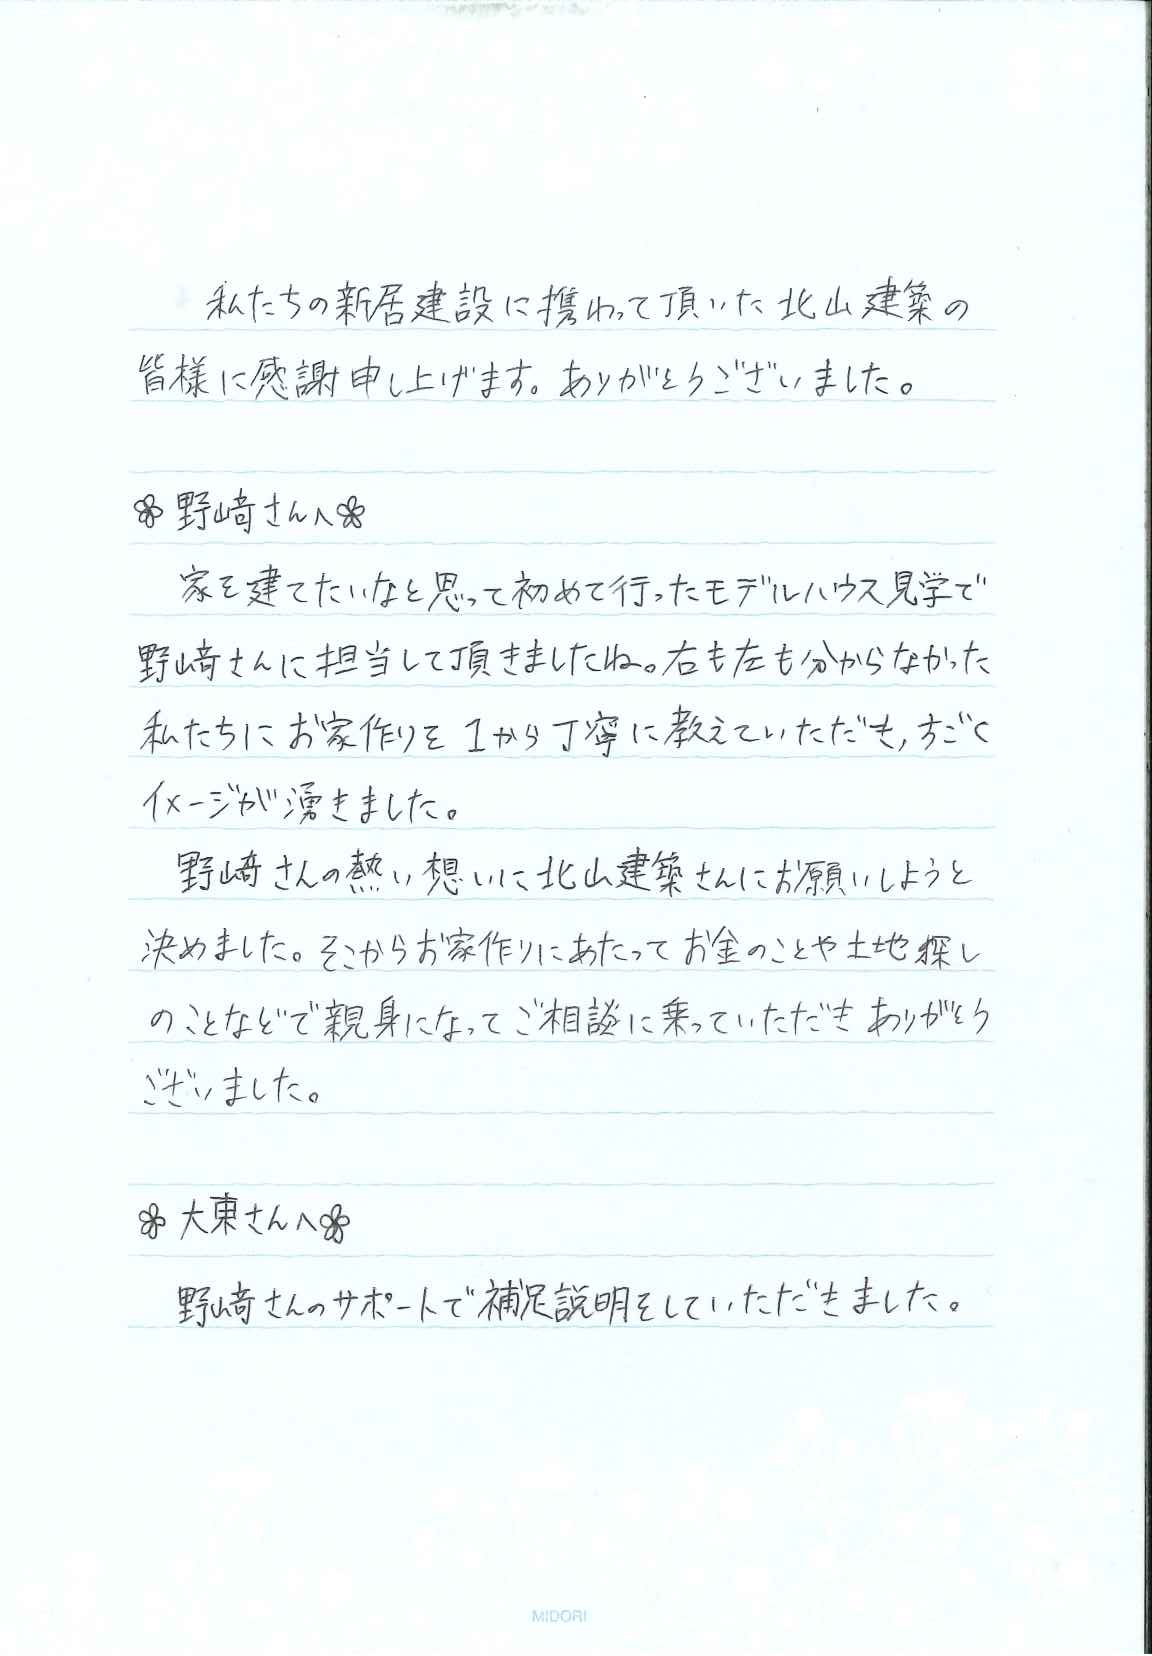 私たちの新居建設に携わって頂いた北山建築の
皆様に感謝申し上げます。ありがとうございました。
野﨑さんへ
家を建てたいなと思って初めて行ったモデルハウス見学で
野﨑さんに担当して頂きましたね。右も左も分からなかった
私たちにお家作りを1から丁寧に教えていただき,すごく
イメージが湧きました。
野﨑さんの熱い想いに北山建築さんにお願いしようと
決めました。そこからお家作りにあたってお金のことや土地探し
のことなどで親身になってご相談に乗っていただきありがとう
ございました。
大東さんへ
野﨑さんのサポートで補足説明をしていただきました。
MIDORI